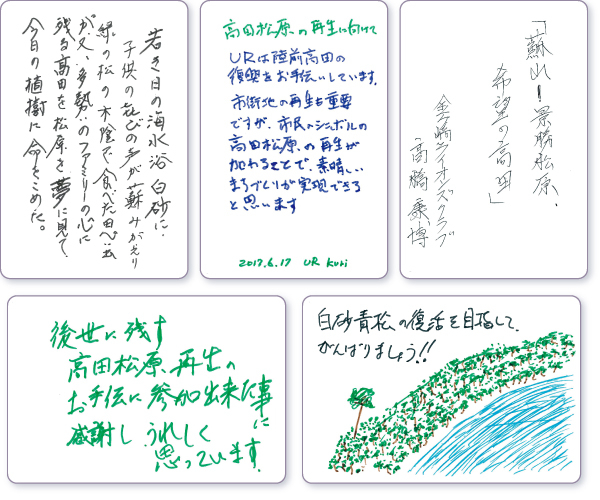 若き日の海水浴 白砂に、
子供の喜びの声が蘇みがえり
緑の松の木陰で食べた思い出
が又、多勢のファミリーの心に
残る高田を松原を夢に見て
今日の植樹に命をこめた。
高田松原の再生に向けて
URは陸前高田の
復興をお手伝いしています。
市街地の再生も重要
ですが、市民のシンボルの
高田松原の再生が
加わることで、素晴しい
まちづくりが実現できる
と思います
2017.6.17 UR Kuri
「蘇れ!景勝松原、
希望の高田」
ライオンズクラブ
高橋 博
後世に残す
高田松原、再生の
お手伝に参加出来た事に
感謝し うれしく
思っています。
白砂青松の復活を目指して
がんばりましょう!!